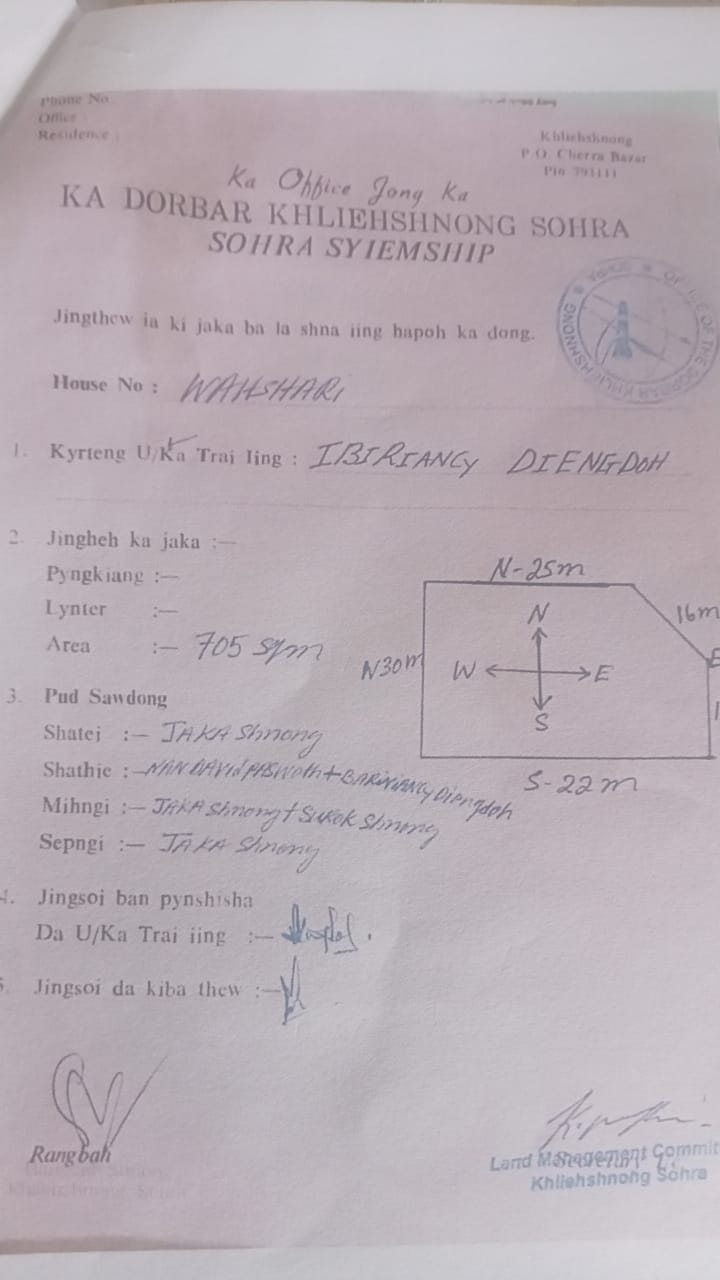 Phone No
Office :
Residence :
Khliehshnong
P.O. Cherra Bazar
Pin 793111
Ka Office Jong Ka
KA DORBAR KHLIEHSHNONG SOHRA
SOHRA SYIEMSHIP
OFFICE OF THE DORBAR KHLIEHSHNONG SOHRA
Jingthew ia ki jaka ba la shna iing hapoh ka dong.
House No : WAHSHARI
1. Kyrteng U/Ka Trai Iing : IBIRIANCY DIENGDOH
2. Jingheh ka jaka :—
Pyngkiang :—
Lynter :—
Area :— 705 sqm
N-25m
16m
N30m
N
W E
S
E
S-22m
3. Pud Sawdong
Shatei :— JAKA Shnong
Shathie :— + Diengdoh
Mihngi :— JAKA Shnong + Shnong
Sepngi :— JAKA Shnong
4. Jingsoi ban pynshisha
Da U/Ka Trai iing :—
5. Jingsoi da kiba thew :—
Rangbah
Land Management Commit
Khliehshnong Sohra